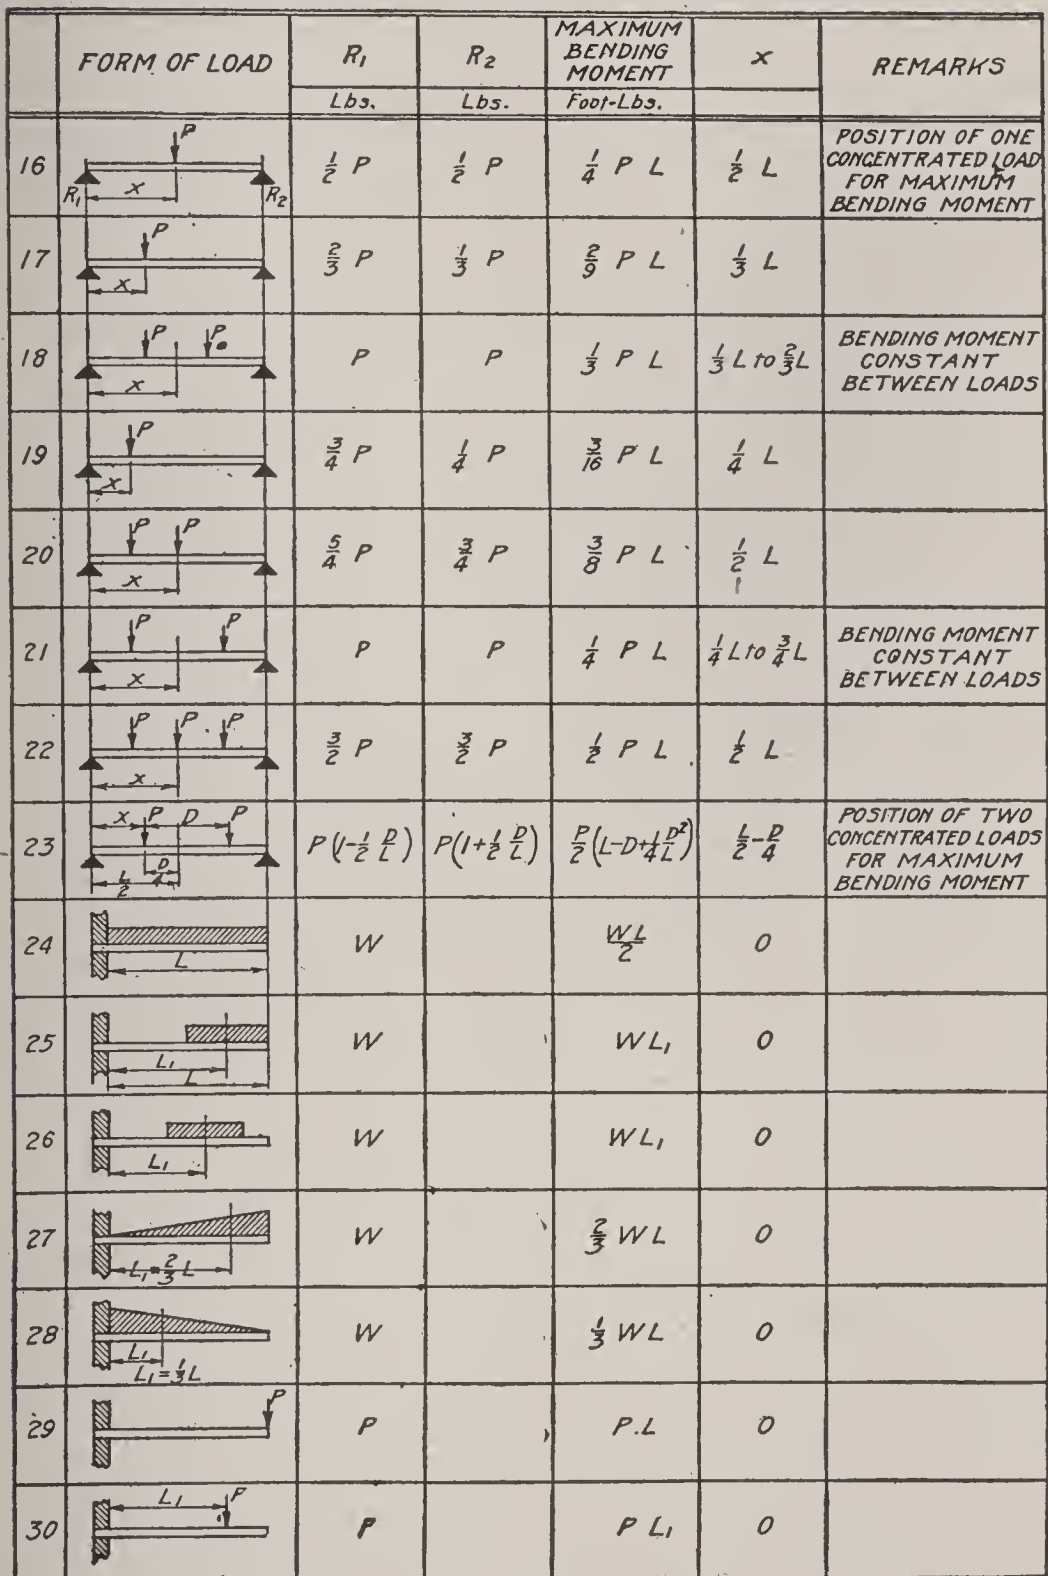 FORM OF LOAD R₁ R₂ MAXIMUM BENDING MOMENT x REMARKS
Lbs. Lbs. Foot-Lbs.
16 P R₁ x R₂ 1/2 P 1/2 P 1/4 P L 1/2 L POSITION OF ONE CONCENTRATED LOAD FOR MAXIMUM BENDING MOMENT
17 P x 2/3 P 1/3 P 2/9 P L 1/3 L
18 P P x P P 1/3 P L 1/3 L to 2/3 L BENDING MOMENT CONSTANT BETWEEN LOADS
19 P x 3/4 P 1/4 P 3/16 P L 1/4 L
20 P P x 5/4 P 3/4 P 3/8 P L 1/2 L
21 P P x P P 1/4 P L 1/4 L to 3/4 L BENDING MOMENT CONSTANT BETWEEN LOADS
22 P P P x 3/2 P 3/2 P 1/2 P L 1/2 L
23 x P D P D/4 L/2 P(1-1/2 D/L) P(1+1/2 D/L) P/2(L-D+1/4 D²/L) L/2-D/4 POSITION OF TWO CONCENTRATED LOADS FOR MAXIMUM BENDING MOMENT
24 L W WL/2 0
25 L₁ L W WL₁ 0
26 L₁ W WL₁ 0
27 L₁=2/3 L W 2/3 WL 0
28 L₁ L₁=1/3 L W 1/3 WL 0
29 P P P.L 0
30 L₁ P P P L₁ 0